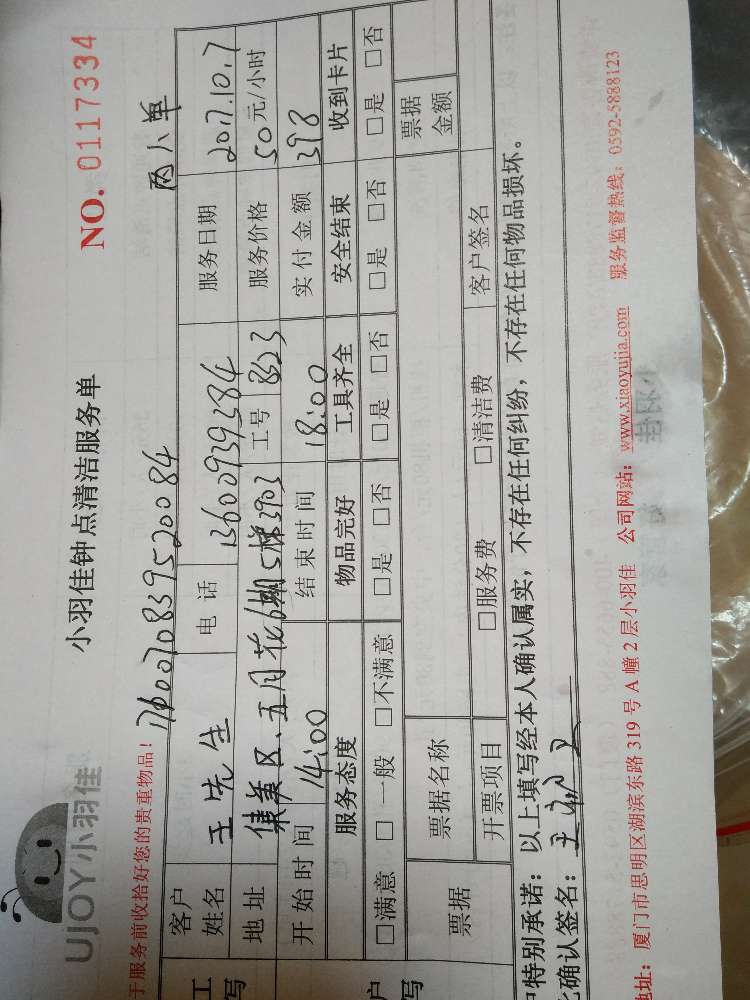 UJOY小羽佳
小羽佳钟点清洁服务单
NO. 0117334
于服务前收拾好您的贵重物品！
两人单
客户姓名 王先生 电话 13600939384 服务日期 2017.10.7
地址 集美区、五月花 工号 服务价格 50元/小时
开始时间 14:00 结束时间 18:00 实付金额 398
服务态度 物品完好 工具齐全 安全结束 收到卡片
□满意 □一般 □不满意 □是 □否 □是 □否 □是 □否 □是 □否
票据 票据名称 票据金额
开票项目 □服务费 □清洁费 客户签名
特别承诺：以上填写经本人确认属实，不存在任何纠纷，不存在任何物品损坏。
确认签名：
地址：厦门市思明区湖滨东路 319 号 A 幢 2 层小羽佳 公司网站：www.xiaoyujia.com 服务监督热线：0592-5888123